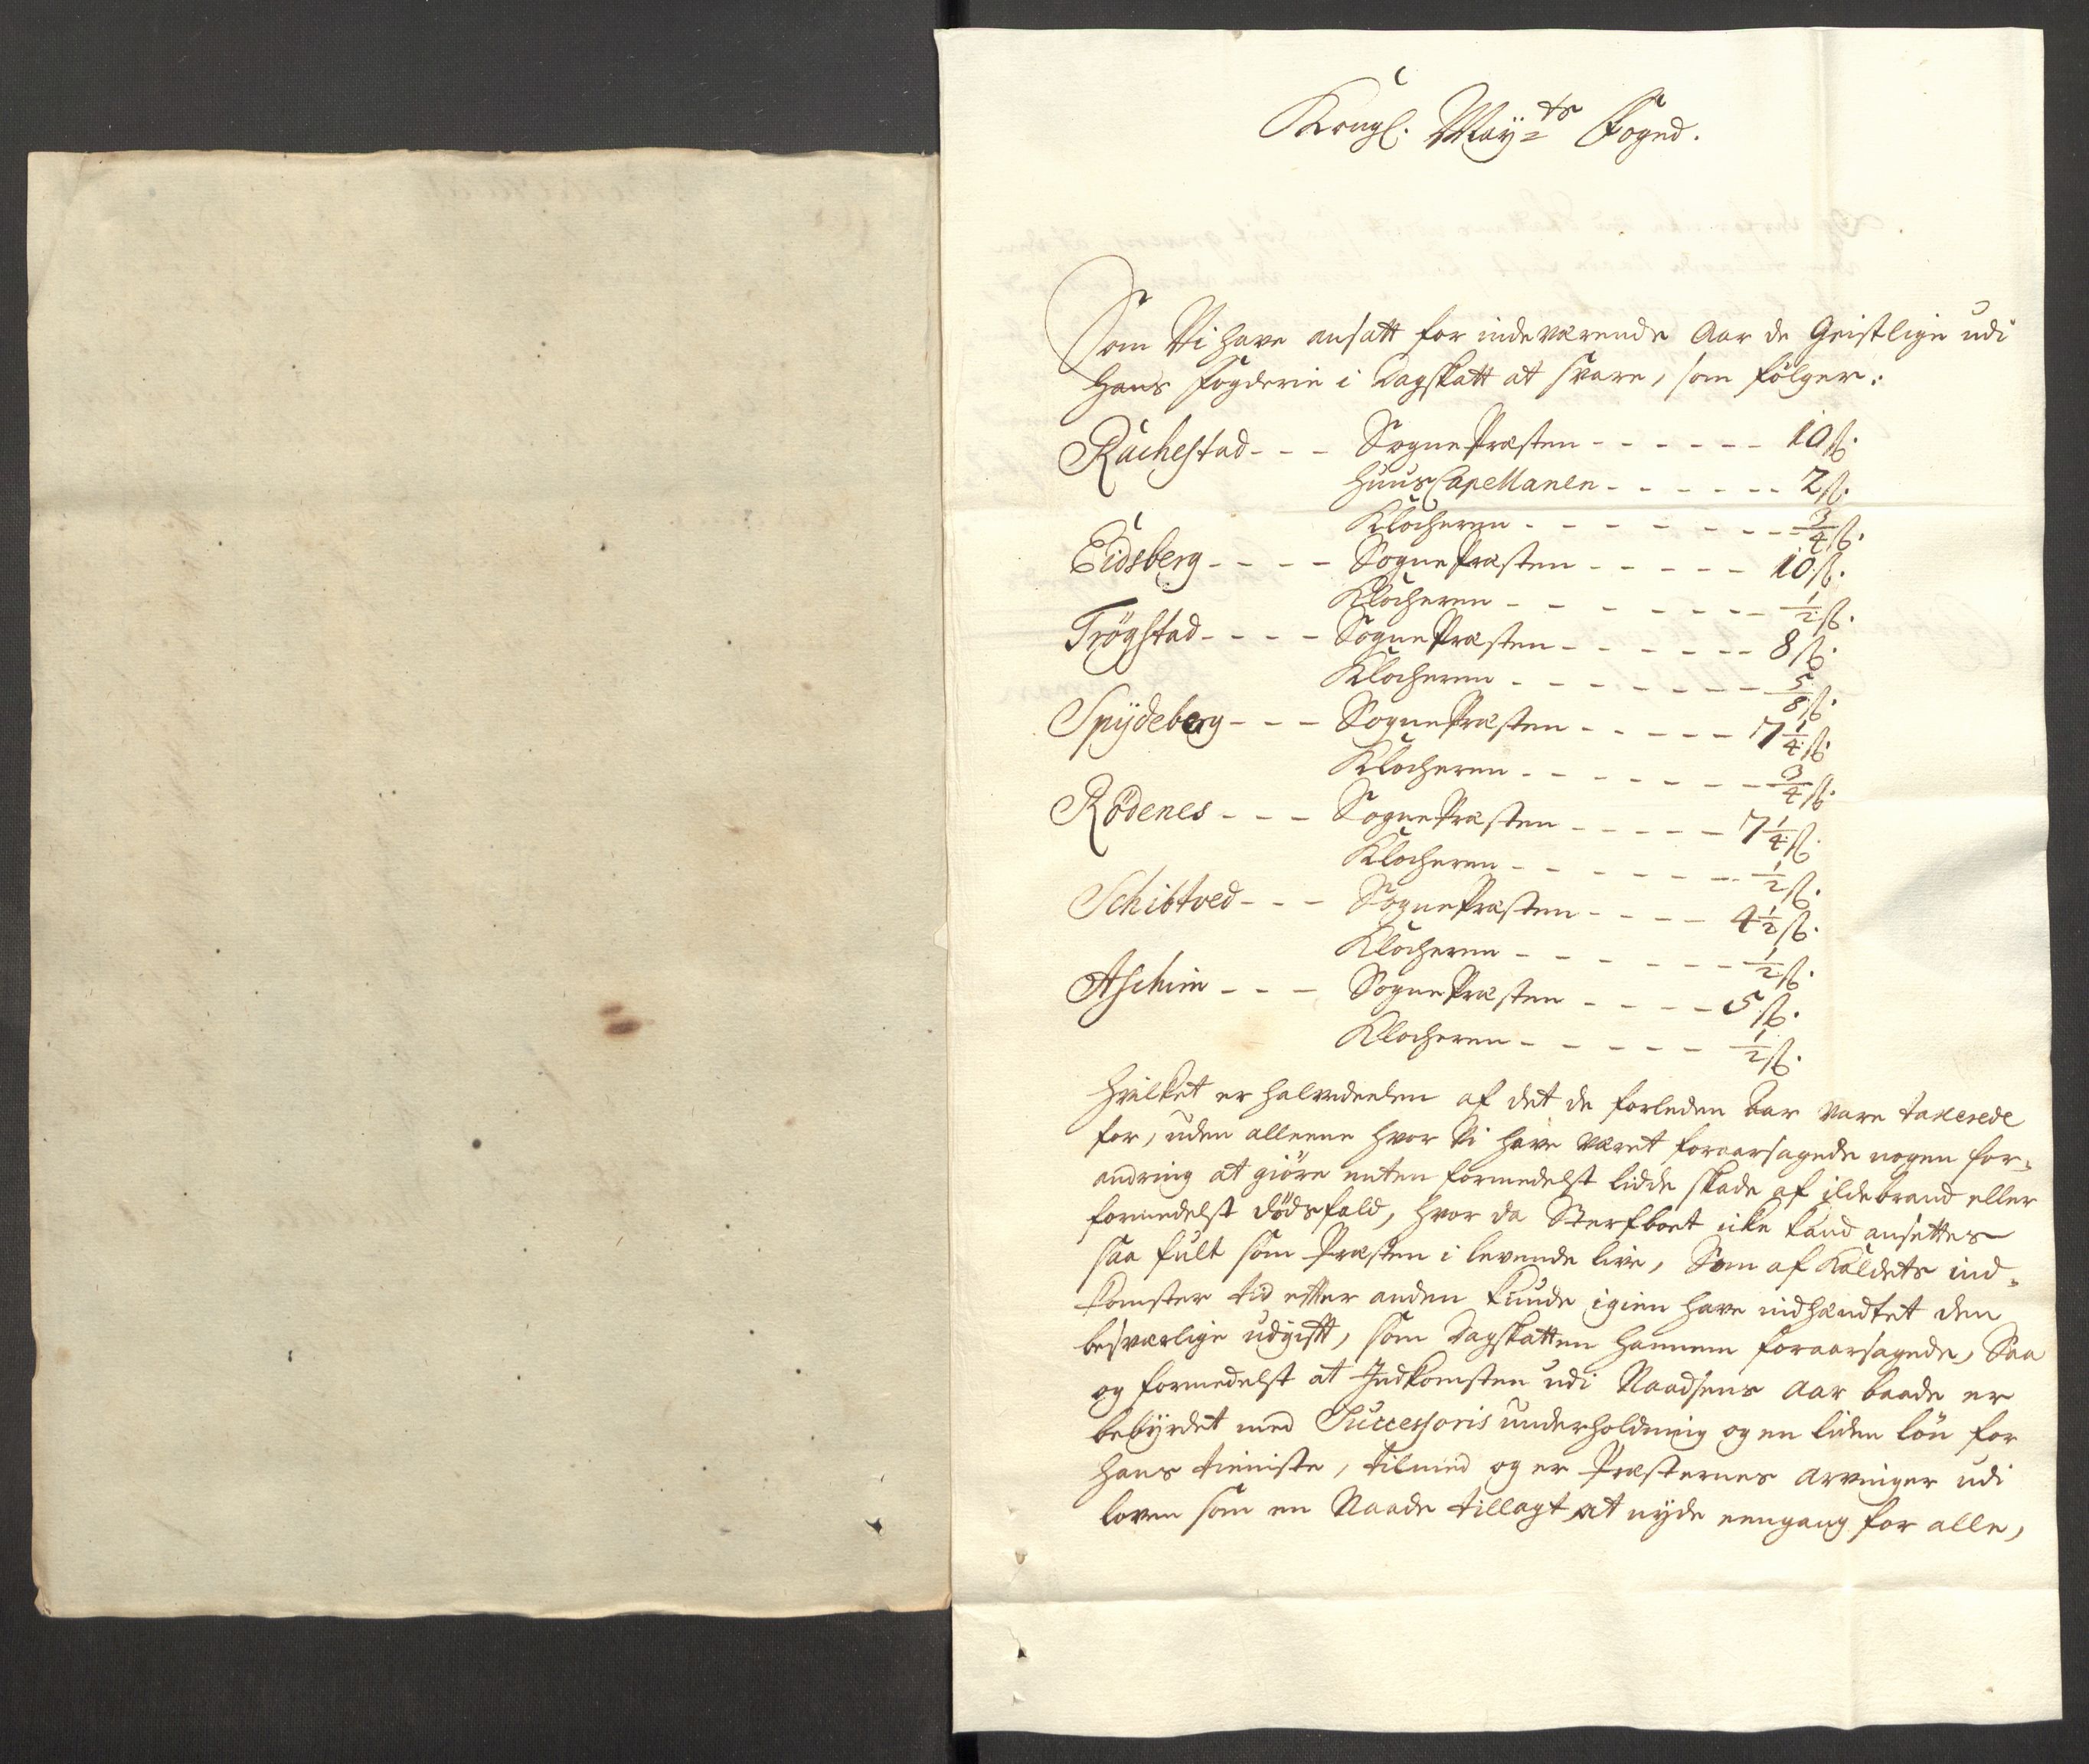 Kongl. May=ts Foged.
Som Vi have ansatt for indeværende Aar de Geistlige udi
hans fogderie i Dagskatt at svare, som følger:
Rachestad - - - SognePræsten - - - - - - 10 ß.
HuusCapellanen - - - - - - 2 ß.
Klocheren - - - - - - - 3/4 ß.
Eidsberg - - - - SognePræsten - - - - - 10 ß.
Klocheren - - - - - - - 1/2 ß.
Trögstad - - - - SognePræsten - - - - - - 8 ß.
Klocheren - - - - - - - 5/8 ß.
Spÿdeberg - - - SognePræsten - - - - - 7 1/4 ß.
Klocheren - - - - - - - 3/4 ß.
Rödenes - - - SognePræsten - - - - - 7 1/4 ß.
Klocheren - - - - - - - 1/2 ß.
Schibtved - - - SognePræsten - - - - 4 1/2 ß.
Klocheren - - - - - - - 1/2 ß.
Aschim - - - SognePræsten - - - - 5 ß.
Klocheren - - - - - - 1/2 ß.
Hvilket er halvedeelen af det de forleden Aar vare taxerede
for, uden alleene hvor Vi have været foraarsagede nogen for=
andring at giöre enten formedelst lidde skade af ildebrand eller
formedelst dödsfald, hvor da Sterfboet icke kand ansettes
saa fult som Præsten i levende live, Som af Kaldets ind=
komster tid efter anden kunde igien have indhændtet den
besværlige udgifft, som Dagskatten hannem foraarsagede, Saa
og formedelst at Indkomsten udi Naadsens Aar baade er
bebÿrdet med Successoris underholdning og en liden lön for
hans tieniste, tilmed og er Præsternes arvinger udi
loven som en Naade tillagt at nÿde eengang for alle,